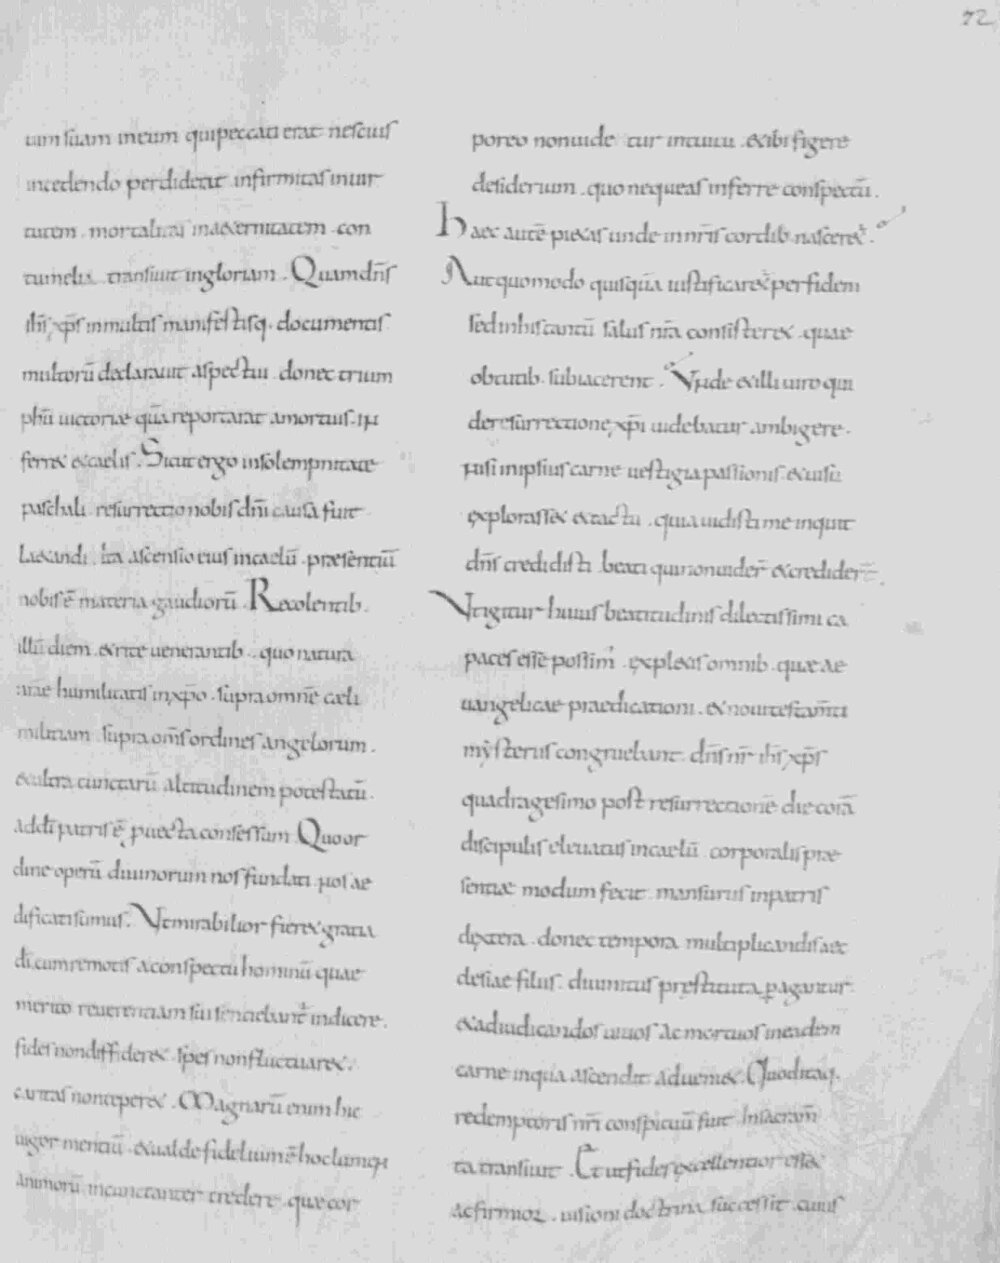 72
tim suam in eum qui peccati erat nescius
incedendo perdiderat infirmitas in uir
tutem. mortalitas in aeternitatem. con
tumelia transiuit in gloriam. Quam dn̄s
ih̄s xp̄s in multis manifestisq. documentis
multorū declarauit aspectui donec trium
phū uictoriae quā reportarat a mortuis. in
ferret et caelis. Sicut ergo in solempnitate
paschali resurrectio nobis dn̄i causa fuit
laetandi. ita ascensio eius in caelū. praesentiū
nobis ē materia gaudiorū. Recolentib.
illū diem. et rite uenerantib. quo natura
nr̄ae humilitatis in xp̄o. supra omnē caeli
militiam. supra om̄s ordines angelorum.
et ultra cunctarū altitudinem potestatū.
ad dī patris ē puecta consessum. Quo or
dine operū diuinorum nos fundati. nos ae
dificati sumus. Vt mirabilior fieret gratia
dī. cum remotis a conspectu hominū quae
merito reuerentiam sui sentiebant̄ indicere.
fides non diffideret. spes non fluctuaret.
caritas non teperet. Magnarū enim hic
uigor mentiū. et ualde fidelium ē hoc lumen
animorū incunctanter credere. quae cor
poreo non uidetur intuitu. et ibi figere
desiderium. quo nequeas inferre conspectū.
Haec autē pietas unde in nr̄is cordib. nasceret̄.
Aut quomodo quisquā iustificaret̄ per fidem
sed in his tantū salus nr̄a consisteret. quae
obtutib. subiacerent. Vnde et illi uiro qui
de resurrectione xp̄i uidebatur ambigere.
nisi in ipsius carne uestigia passionis et uisū
explorasset et tactu. quia uidisti me inquit
dn̄s credidisti beati qui non uider̄ et credider̄.
Vt igitur huius beatitudinis dilectissimi ca
paces esse possim' expletis omnib. quae ae
uangelicae praedicationi. et noui testam̄ti
mysteriis congruebant. dn̄s nr̄ ih̄s xp̄s
quadragesimo post resurrectionē die corā
discipulis eleuatus in caelū. corporalis prae
sentiae modum fecit. mansurus in patris
dextera. donec tempora multiplicandis aec
clesiae filiis. diuinitus prestituta pagantur
et ad iudicandos uiuos ac mortuos in eadem
carne in qua ascendit adueniet. Quod itaq.
redemptoris nr̄i conspicuū fuit. In sacram̄
ta transiuit. Et ut fides excellentior esset
ac firmior. uisioni doctrina successit. cuius